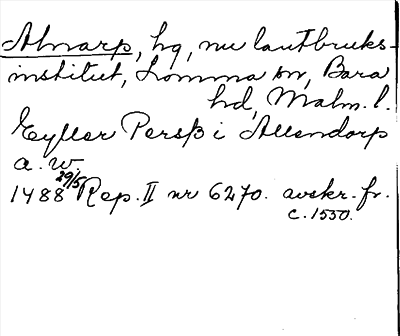 Alnarp, hg, nu lantbruks-
institut, Lomma sn, Bara
hd, Malm. l.
Eyller Persß i Allendorp
a. w.
1488 29/5 Rep. II nr 6270. avskr. fr.
c. 1550.